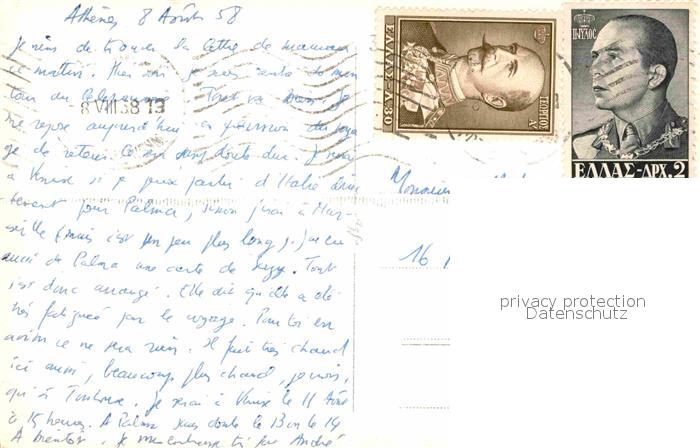 Athènes 8 Août 58
Je viens de trouver la lettre de maman
ce matin. Hier soir je suis rentré de mon
tour du Péloponnèse. Tout va bien. Je
me repose aujourd'hui
ge de retour. Ce sera sans doute dur. Je
à Venise si je peux partir d'Italie
pour Palma, sinon j'irai à Mar-
seille (mais c'est un peu plus long). J'ai eu
aussi de Palma une carte de. Tout
est donc arrangé. Elle dit qu'elle a été
très fatiguée par le voyage. Pour toi en
avion ce ne sera rien. Il fait très chaud
ici aussi, beaucoup plus chaud, je crois,
qu'à Toulouse. Je serai à Venise le 11 Août
à 15 heures. A Palma sans doute le 13 ou le 14
A bientôt. Je t'embrasse André
8 VIII 58 13
ΕΛΛΑΣ-ΔΡ. 50
ΓΕΩΡΓΙΟΣ Α'
ΠΑΥΛΟΣ
ΕΛΛΑΣ-ΔΡΧ. 2
Monsieur
16
privacy protection
Datenschutz